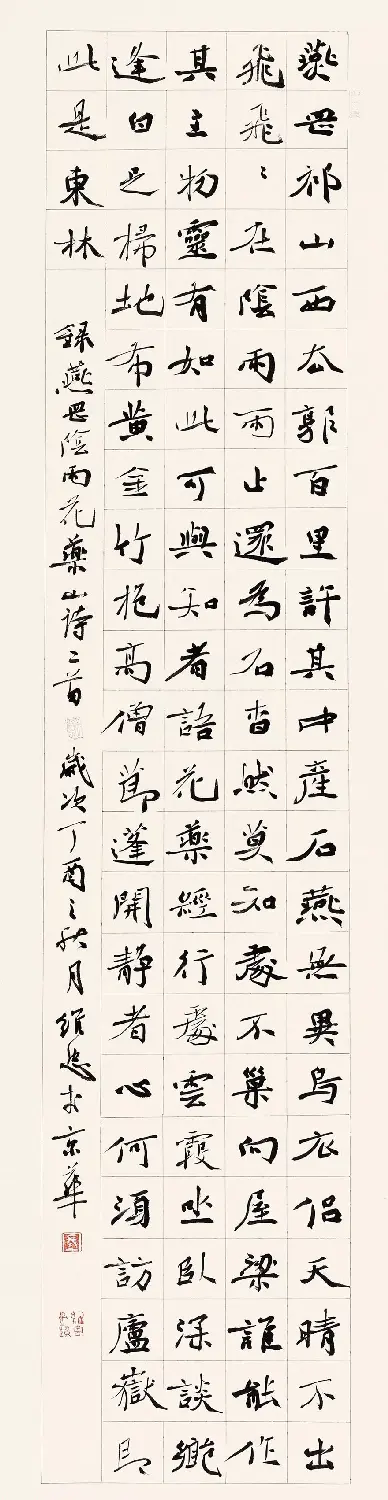 燕祁山西去郭百里許其中產石燕無異烏衣侶天晴不出
飛飛〻在陰雨雨止還為石杳然莫知處不巢向屋梁誰能作
其主物靈有如此可與知者語花藥經行處雲霞坐臥深談
逢白足掃地布黃金竹抱高僧節蓮開靜者心何須訪廬嶽即
此是東林
錄燕陰雨花藥山詩二首歲次丁酉之秋月維忠於京華